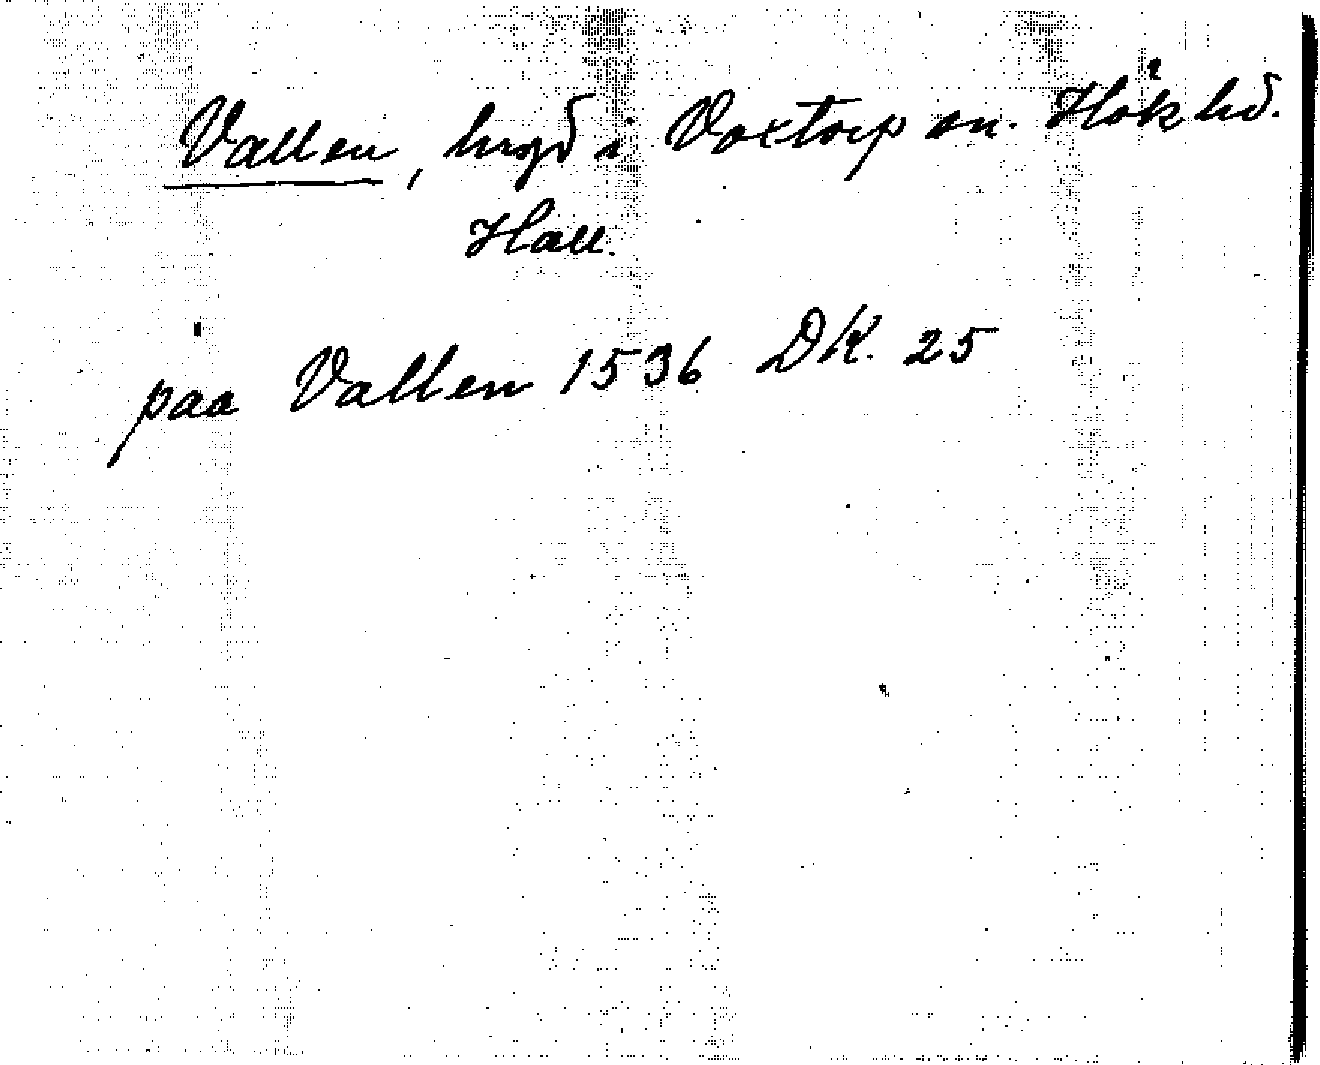 Vallen, hrgd i Voxtorp sn. Hök hd.
Hall.
paa Vallen 1536 DK. 25